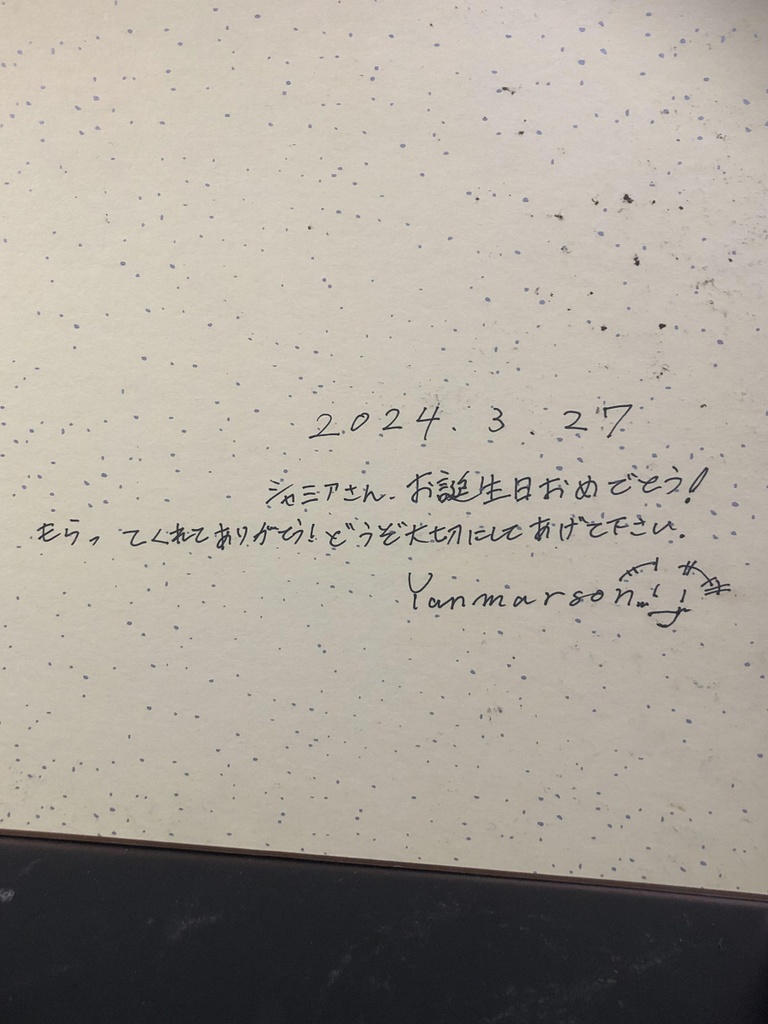 2024.3.27
ジャミアさん、お誕生日おめでとう!
もらってくれてありがとう!どうぞ大切にしてあげて下さい。
Yanmarson